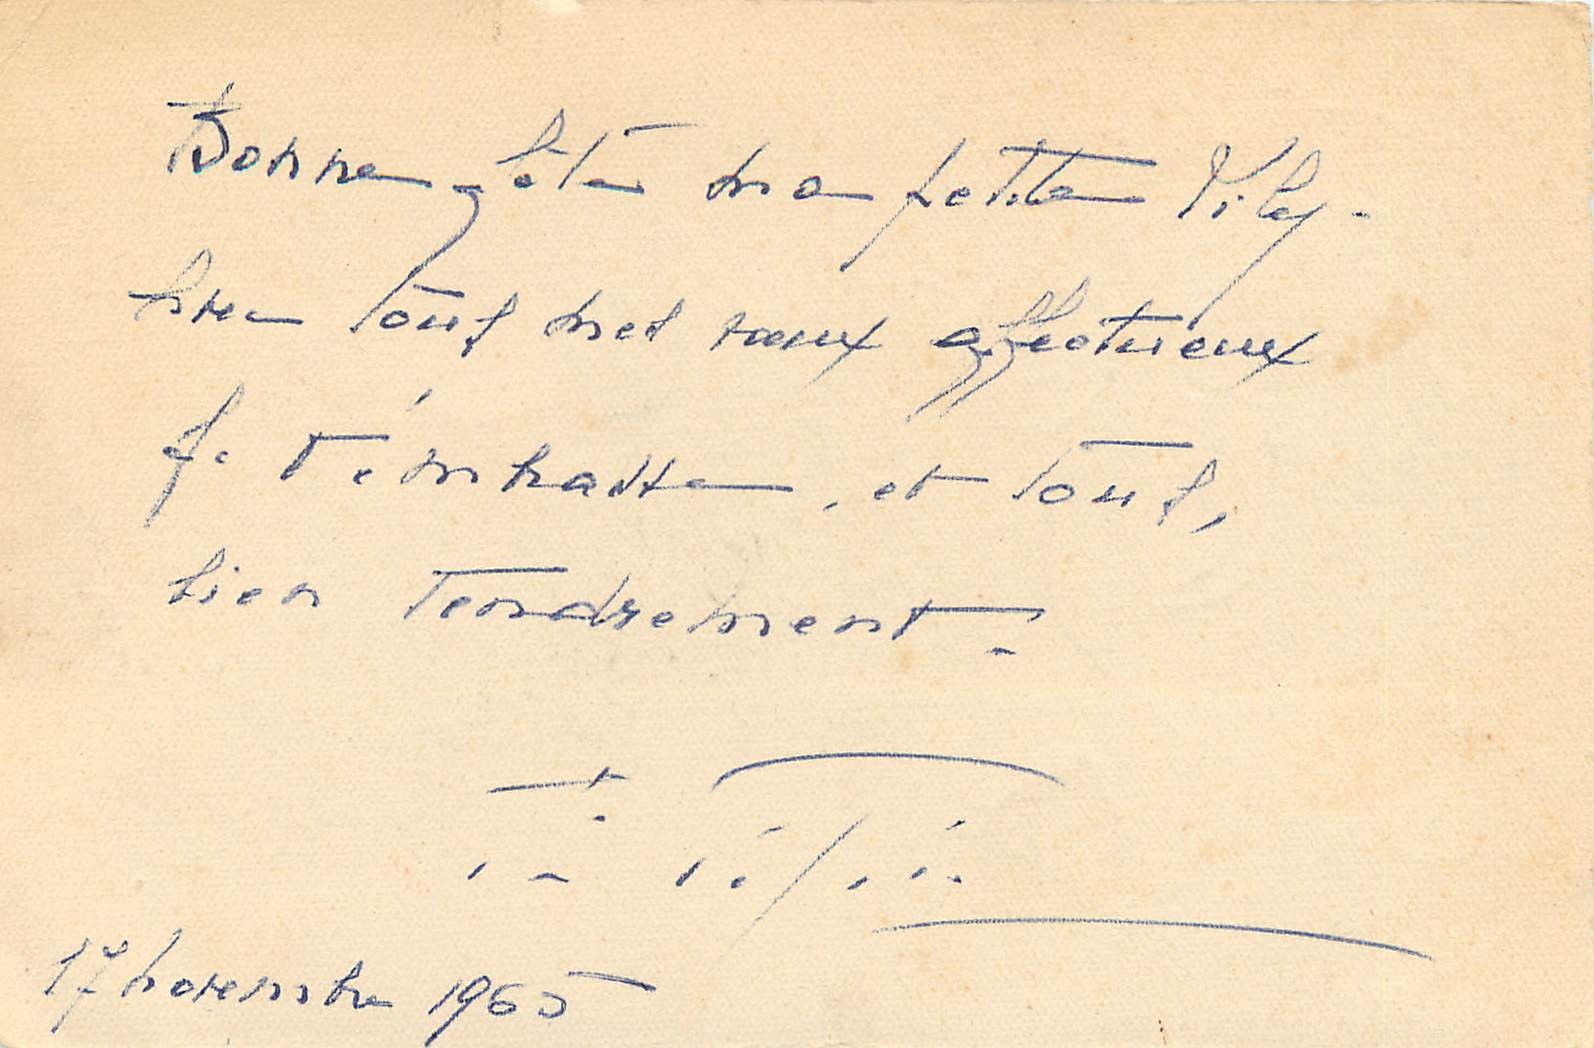 Bonne fête ma petite
bien tous mes vœux affectueux
Je t'embrasse, et tous,
bien tendrement -
17 novembre 1965